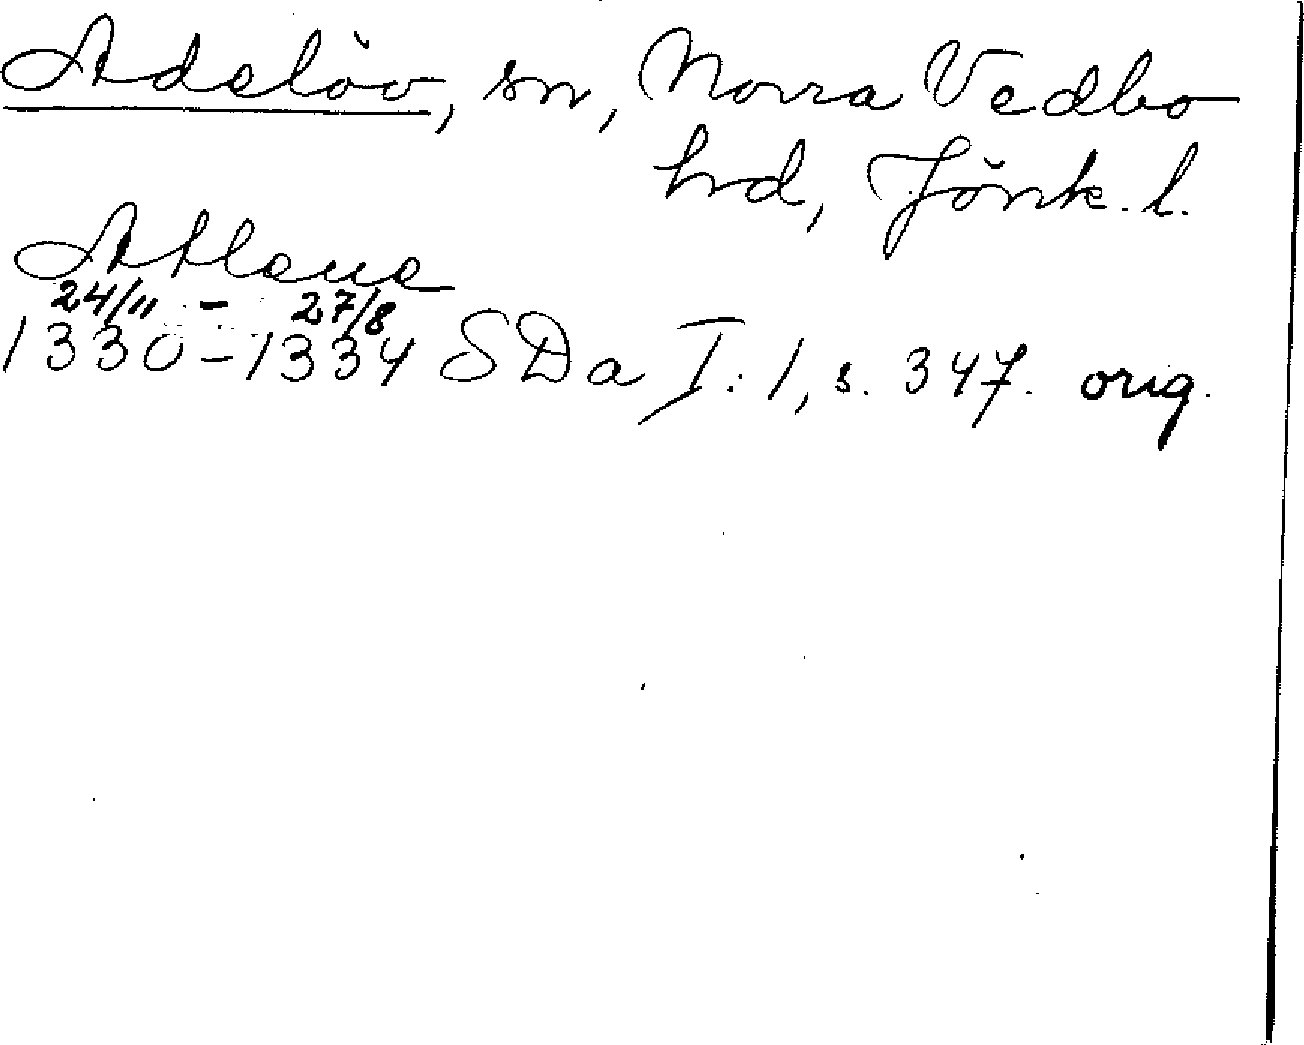 Adelöv, sn, Norra Vedbo
hd, Jönk. l.
Atleue
24/11 - 27/8
1330-1334 SDa I:1, s. 347. orig.